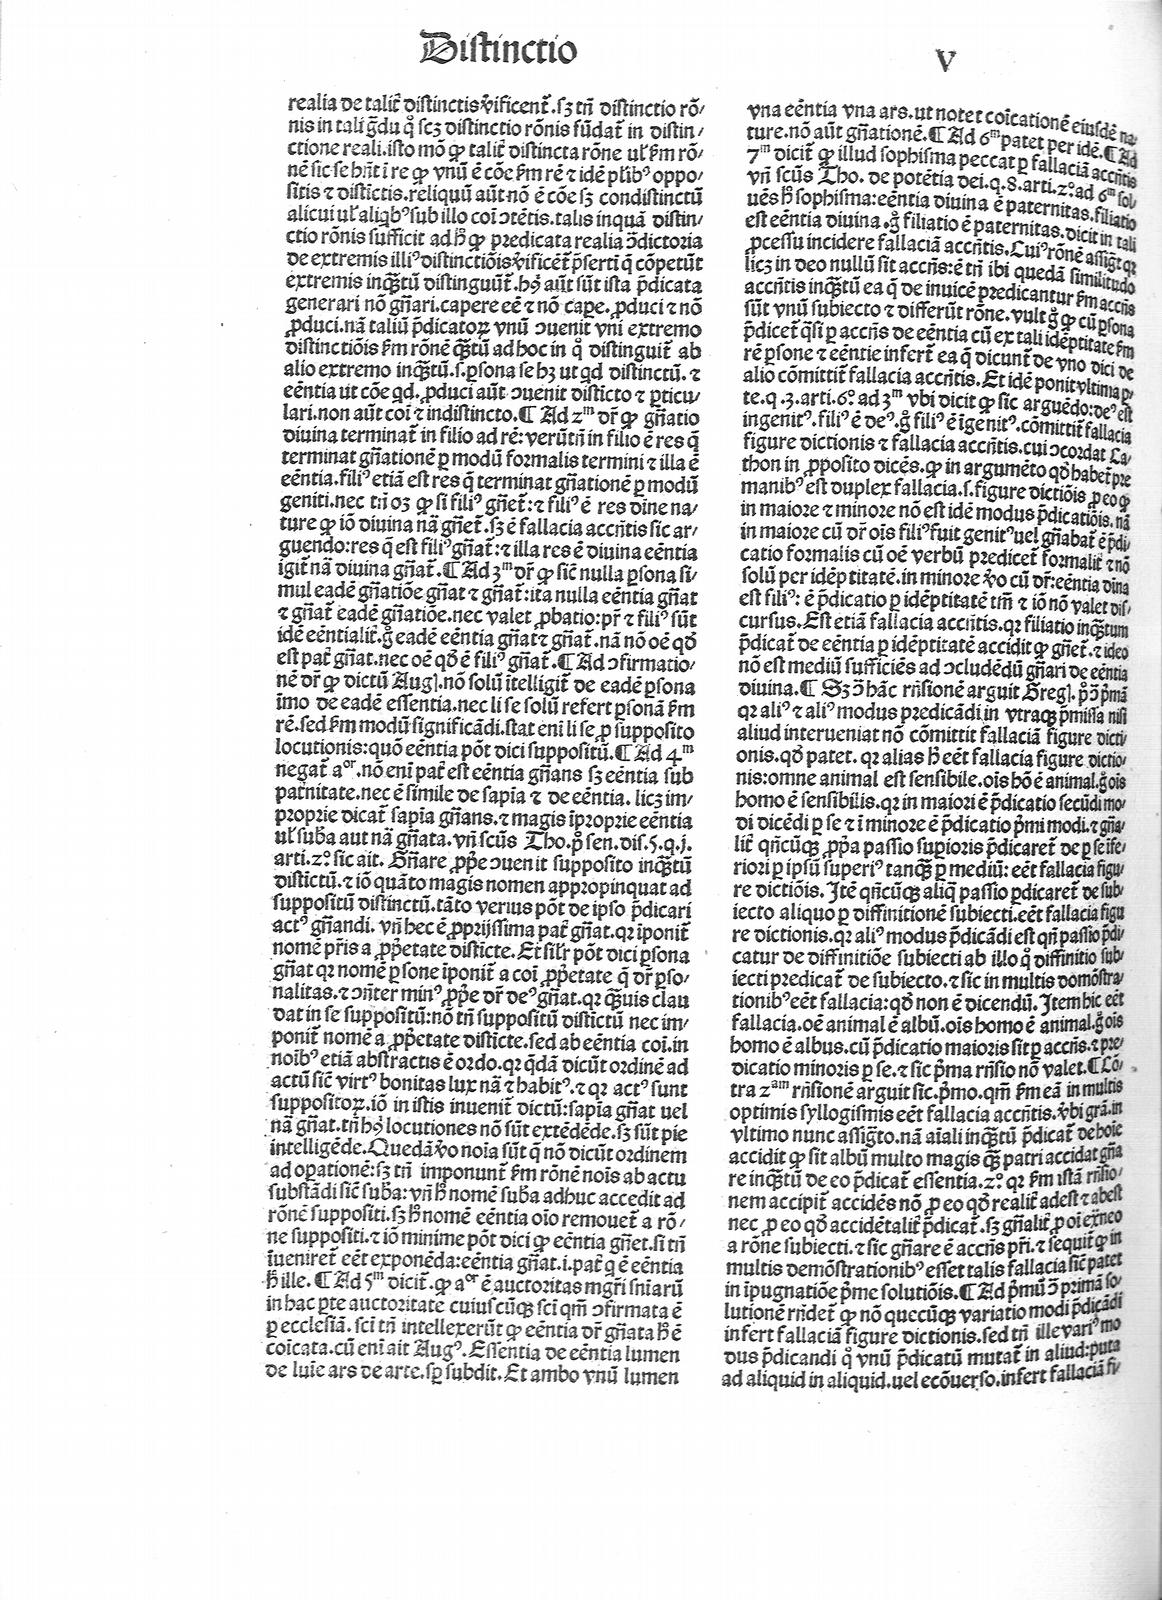 Distinctio
V
realia de talit᷑ distinctis v̾ificent᷑.sꝫ tn̄ distinctio rō/
nis in tali gͣdu qͦ scꝫ distinctio rōnis fūdat᷑ in distin/
ctione reali.isto mō ꝙ talit᷑ distincta rōne ul̓ ẜm rō/
nē sic se hn̄t i re ꝙ vnū ē cōe ẜm rē ⁊ idē pl̓ibꝰ oppo/
sitis ⁊ distictis.reliquū aūt nō ē cōe sꝫ condistinctū
alicui ul̓ aliqͥbꝰ sub illo coi ↄtētis.talis inquā distin/
ctio rōnis sufficit ad hͦ ꝙ predicata realia ↄ̄dictoria
de extremis illiꝰ distinctiōis v̾ificēt᷑ p̄serti q̄ cōpetūt
extremis inqͣꝫtū distinguūt᷑.hꝰ aūt sūt ista p̄dicata
generari nō gn̄ari.capere eē ⁊ nō cape. ꝓduci ⁊ nō
ꝓduci.nā taliū p̄dicatoꝝ vnū ↄuenit vni extremo
distinctiōis ẜm rōnē qͣꝫtū ad hoc in qͦ distinguit᷑ ab
alio extremo inqͣꝫtū.s.ꝑsona se hꝫ ut qd distinctū. ⁊
eēntia ut cōe qd. ꝓduci aūt ↄuenit disticto ⁊ ꝑticu/
lari.non aūt coi ⁊ indistincto.¶ Ad 2ᵐ dr̄ ꝙ gn̄atio
diuina terminat᷑ in filio ad rē: verūtn̄ in filio ē res q̄
terminat gn̄ationē ꝑ modū formalis termini ⁊ illa ē
eēntia.filiꝰ etiā est res q̄ terminat gn̄ationē ꝑ modū
geniti.nec tn̄ oꝫ ꝙ si filiꝰ gn̄et᷑:⁊ filiꝰ ē res dine na/
ture ꝙ iō diuina nā gn̄et᷑.sꝫ ē fallacia accn̄tis sic ar/
guendo:res q̄ est filiꝰ gn̄at᷑:⁊ illa res ē diuina eēntia
igit᷑ nā diuina gn̄at᷑.¶ Ad 3ᵐ dr̄ ꝙ sic̄ nulla ꝑsona si/
mul eadē gn̄atiōe gn̄at ⁊ gn̄at᷑:ita nulla eēntia gn̄at
⁊ gn̄at᷑ eadē gn̄atiōe.nec valet ꝓbatio:pr̄ ⁊ filiꝰ sūt
idē eēntialit᷑.gͦ eadē eēntia gn̄at ⁊ gn̄at᷑. nā nō oē qđ
est pat᷑ gn̄at.nec oē qđ ē filiꝰ gn̄at᷑.¶ Ad ↄfirmatio/
nē dr̄ ꝙ dictū Augꝭ.nō solū ītelligit᷑ de eadē ꝑsona
īmo de eadē essentia.nec li se solū refert ꝑsonā ẜm
rē.sed ẜm modū significādi.stat eni li se ꝓ supposito
locutionis:quō eēntia pōt dici suppositū.¶ Ad 4ᵐ
negat᷑ aᵒʳ.nō eni pat᷑ est eēntia gn̄ans sꝫ eēntia sub
pat᷑nitate.nec ē simile de sapia ⁊ de eēntia. licꝫ im/
proprie dicat᷑ sapia gn̄ans.⁊ magis īproprie eēntia
ul̓ suba aut nā gn̄ata.vn̄ scūs Tho.pͦ sen.dis.5.q.j.
arti.2ͦ sic ait. Gn̄are ꝓp̄e ↄuenit supposito inqͣꝫtū
distictū.⁊ iō quāto magis nomen appropinquat ad
suppositū distinctū.tāto verius pōt de ipso p̄dicari
actꝰ gn̄andi. vn̄ hec ē ꝓprijssima pat᷑ gn̄at.qꝛ īponit᷑
nomē pr̄is a ꝓp̄etate disticte.Et sil̓r pōt dici ꝑsona
gn̄at qꝛ nomē ꝑsone īponit᷑ a coi ꝓp̄etate q̄ dr̄ ꝑso/
nalitas.⁊ ↄn̄ter minꝰ ꝓp̄e dr̄ deꝰ gn̄at.qꝛ qͣꝫuis clau
dat in se suppositū:nō tn̄ suppositū distictū nec im/
ponit᷑ nomē a ꝓp̄etate disticte.sed ab eēntia coi.in
noībꝰ etiā abstractis ē ordo.qꝛ qͥdā dicūt ordinē ad
actū sic̄ virtꝰ bonitas lux nā ⁊ habitꝰ.⁊ qꝛ actꝰ sunt
suppositoꝝ.iō in istis inuenit᷑ dictū:sapia gn̄at uel
nā gn̄at.tn̄ hꝰ locutiones nō sūt extēdēde.sꝫ sūt pie
intelligēde.Quedā v̾o noia sūt q̄ nō dicūt ordinem
ad opationē:sꝫ tn̄ imponunt᷑ ẜm rōnē nois ab actu
substādi sic̄ suba:vn̄ hͦ nomē suba adhuc accedit ad
rōnē suppositi.sꝫ hͦ nomē eēntia oīo remouet᷑ a rō/
ne suppositi.⁊ iō minime pōt dici ꝙ eēntia gn̄et.si tn̄
īueniret᷑ eēt exponēda:eēntia gn̄at.i.pat᷑ q̄ ē eēntia
hͦ ille. ¶ Ad 5ᵐ dicit᷑.ꝙ aᵒʳ ē auctoritas mgr̄i sn̄iarū
in hac ꝑte auctoritate cuiuscūqꝫ sci qm̄ ↄfirmata ē
ꝑ ecclesiā.sci tn̄ intellexerūt ꝙ eēntia dr̄ gn̄ata hͦ ē
cōicata.cū eni ait Augꝰ. Essentia de eēntia lumen
de luie ars de arte.sꝑ subdit.Et ambo vnū lumen
vna eēntia vna ars.ut notet coicationē eiusdē na/
ture.nō aūt gn̄ationē.¶ Ad 6ᵐ patet per idē.¶ Ad
7ᵐ dicit᷑ ꝙ illud sophisma peccat ꝑ fallaciā accn̄tis
vn̄ scūs Tho. de potētia dei.q.8.arti.2ͦ.ad 6ᵐ sol/
uēs hͦ sophisma:eēntia diuina ē paternitas.filiatio
est eēntia diuina.gͦ filiatio ē paternitas.dicit in tali
ꝓcessu incidere fallaciā accn̄tis.Cuiꝰ rōnē assigͣt qꝛ
licꝫ in deo nullū sit accn̄s:ē tn̄ ibi quedā similitudo
accn̄tis inqͣꝫtū ea q̄ de inuicē predicantur ẜm accn̄s
sūt vnū subiecto ⁊ differūt rōne. vult gͦ ꝙ cū ꝑsona
p̄dicet᷑ qͣsi ꝑ accn̄s de eēntia cū ex tali idēptitate ẜm
rē ꝑsone ⁊ eēntie infert᷑ ea q̄ dicunt᷑ de vno dici de
alio cōmittit᷑ fallacia accn̄tis. Et idē ponit vltima ꝑ/
te.q.3.arti.6ͦ.ad 3ᵐ vbi dicit ꝙ sic arguēdo:deꝰ est
ingenitꝰ.filiꝰ ē deꝰ.gͦ filiꝰ ē īgenitꝰ.cōmittit᷑ fallacia
figure dictionis ⁊ fallacia accn̄tis.cui ↄcordat Ca/
thon in ꝓposito dicēs.ꝙ in argumēto qđ habet᷑ pre
manibꝰ est duplex fallacia.s.figure dictiōis ꝓ eo ꝙ
in maiore ⁊ minore nō est idē modus p̄dicatiōis.nā
in maiore cū dr̄ ois filiꝰ fuit genitꝰ uel gn̄abat᷑ ē p̄di
catio formalis cū oē verbū predicet᷑ formalit᷑ ⁊ nō
solū per idēptitatē.in minore v̾o cū dr̄:eēntia dina
est filiꝰ: ē p̄dicatio ꝑ idēptitatē tm̄ ⁊ iō nō valet dis/
cursus. Est etiā fallacia accn̄tis.qꝛ filiatio inqͣꝫtum
p̄dicat᷑ de eēntia ꝑ idēptitatē accidit ꝙ gn̄et᷑.⁊ ideo
nō est mediū sufficiēs ad ↄcludēdū gn̄ari de eēntia
diuina.¶ Sꝫ ↄ̄ hāc rn̄sionē arguit Gregꝭ. pͦ ↄ̄ p̄mā
qꝛ aliꝰ ⁊ aliꝰ modus predicādi in vtraqꝫ p̄missa nisi
aliud interueniat nō cōmittit fallaciā figure dicti/
onis.qđ patet. qꝛ alias hͦ eēt fallacia figure dictio/
nis:omne animal est sensibile.ois hō ē animal.gͦ ois
homo ē sensibilis.qꝛ in maiori ē p̄dicatio secūdi mo/
di dicēdi ꝑ se ⁊ ī minore ē p̄dicatio p̄mi modi.⁊ gn̄a/
lit᷑ qn̄cūqꝫ ꝓp̄a passio suꝑioris p̄dicaret᷑ de ꝑ se īfe/
riori ꝑ ipsū superiꝰ tanqͣꝫ ꝑ mediū: eēt fallacia figu/
re dictiōis. Itē qn̄cūqꝫ aliq̄ passio ꝑdicaret᷑ de sub/
iecto aliquo ꝑ diffinitionē subiecti.eēt fallacia figu
re dictionis.qꝛ aliꝰ modus p̄dicādi est qn̄ passio p̄di/
catur de diffinitiōe subiecti ab illo qͦ diffinitio sub/
iecti predicat᷑ de subiecto.⁊ sic in multis demōstra/
tionibꝰ eēt fallacia:qđ non ē dicendū. Item hic eēt
fallacia.oē animal ē albū.ois homo ē animal.gͦ ois
homo ē albus.cū p̄dicatio maioris sit ꝑ accn̄s.⁊ pre/
dicatio minoris ꝑ se.⁊ sic p̄ma rn̄sio nō valet.¶ Cō/
tra 2ᵃᵐ rn̄sionē arguit sic.p̄mo.qm̄ ẜm eā in multis
optimis syllogismis eēt fallacia accn̄tis.v̾bi grā.in
vltimo nunc assigͣto.nā aīali inqͣꝫtū p̄dicat᷑ de hoīe
accidit ꝙ sit albū multo magis qͣꝫ patri accidat gn̄a
re inqͣꝫtū de eo p̄dicat᷑ essentia.2ͦ qꝛ ẜm istā rn̄sio/
nem accipit᷑ accidēs nō ꝓ eo qđ realit᷑ adest ⁊ abest
nec ꝓ eo qđ accidētalit᷑ p̄dicat᷑. sꝫ gn̄alit᷑ ꝓ oī ex̄neo
a rōne subiecti.⁊ sic gn̄are ē accn̄s pr̄i.⁊ sequit᷑ ꝙ in
multis demōstrationibꝰ esset talis fallacia sic̄ patet
in īpugnatiōe p̄me solutiōis.¶ Ad p̄mū ↄ̄ primā so/
lutionē rn̄det᷑ ꝙ nō quecūqꝫ variatio modi p̄dicādi
infert fallaciā figure dictionis.sed tn̄ ille variꝰ mo
dus p̄dicandi qͦ vnū p̄dicatū mutat᷑ in aliud:puta
ad aliquid in aliquid.uel ecōuerso.infert fallaciā fi/